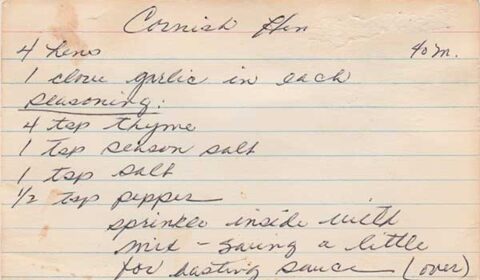 Cornish Hen
4 hens 40 m.
1 clove garlic in each
seasoning:
4 tsp thyme
1 tsp season salt
1 tsp salt
1/2 tsp pepper
sprinkle inside with
mix - saving a little
for basting sauce (over)